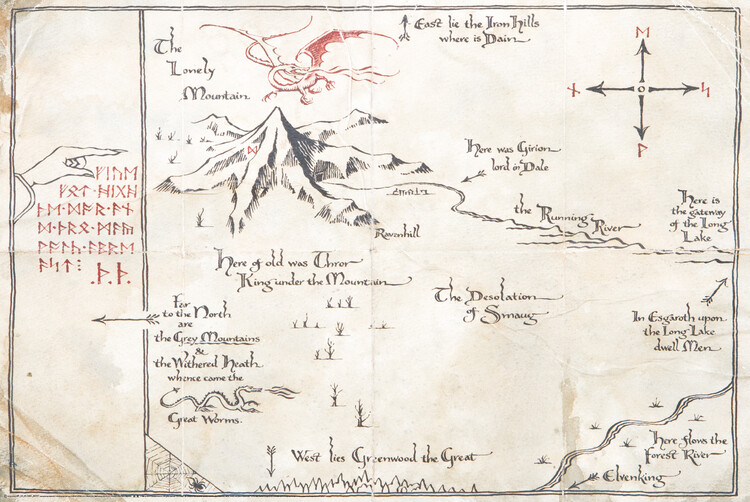 The
Lonely
Mountain
East lie the Iron Hills
where is Dain
ᛖ
ᚾ
ᛋ
ᚹ
ᛞ
Here was Girion
lord in Dale
ᚠᛁᚢᛖ
ᚻᛁᚷᚻ
ᚦᛖ
ᚦ·ᚦ·
Ravenhill
the Running River
Here is
the gateway
of the Long
Lake
Here of old was Thror
King under the Mountain
The Desolation
of Smaug
Far
to the North
are
the Grey Mountains
&
the Withered Heath
whence came the
Great Worms.
In Esgaroth upon
the Long Lake
dwell Men
West lies Greenwood the Great
Here flows the
Forest River
Elvenking